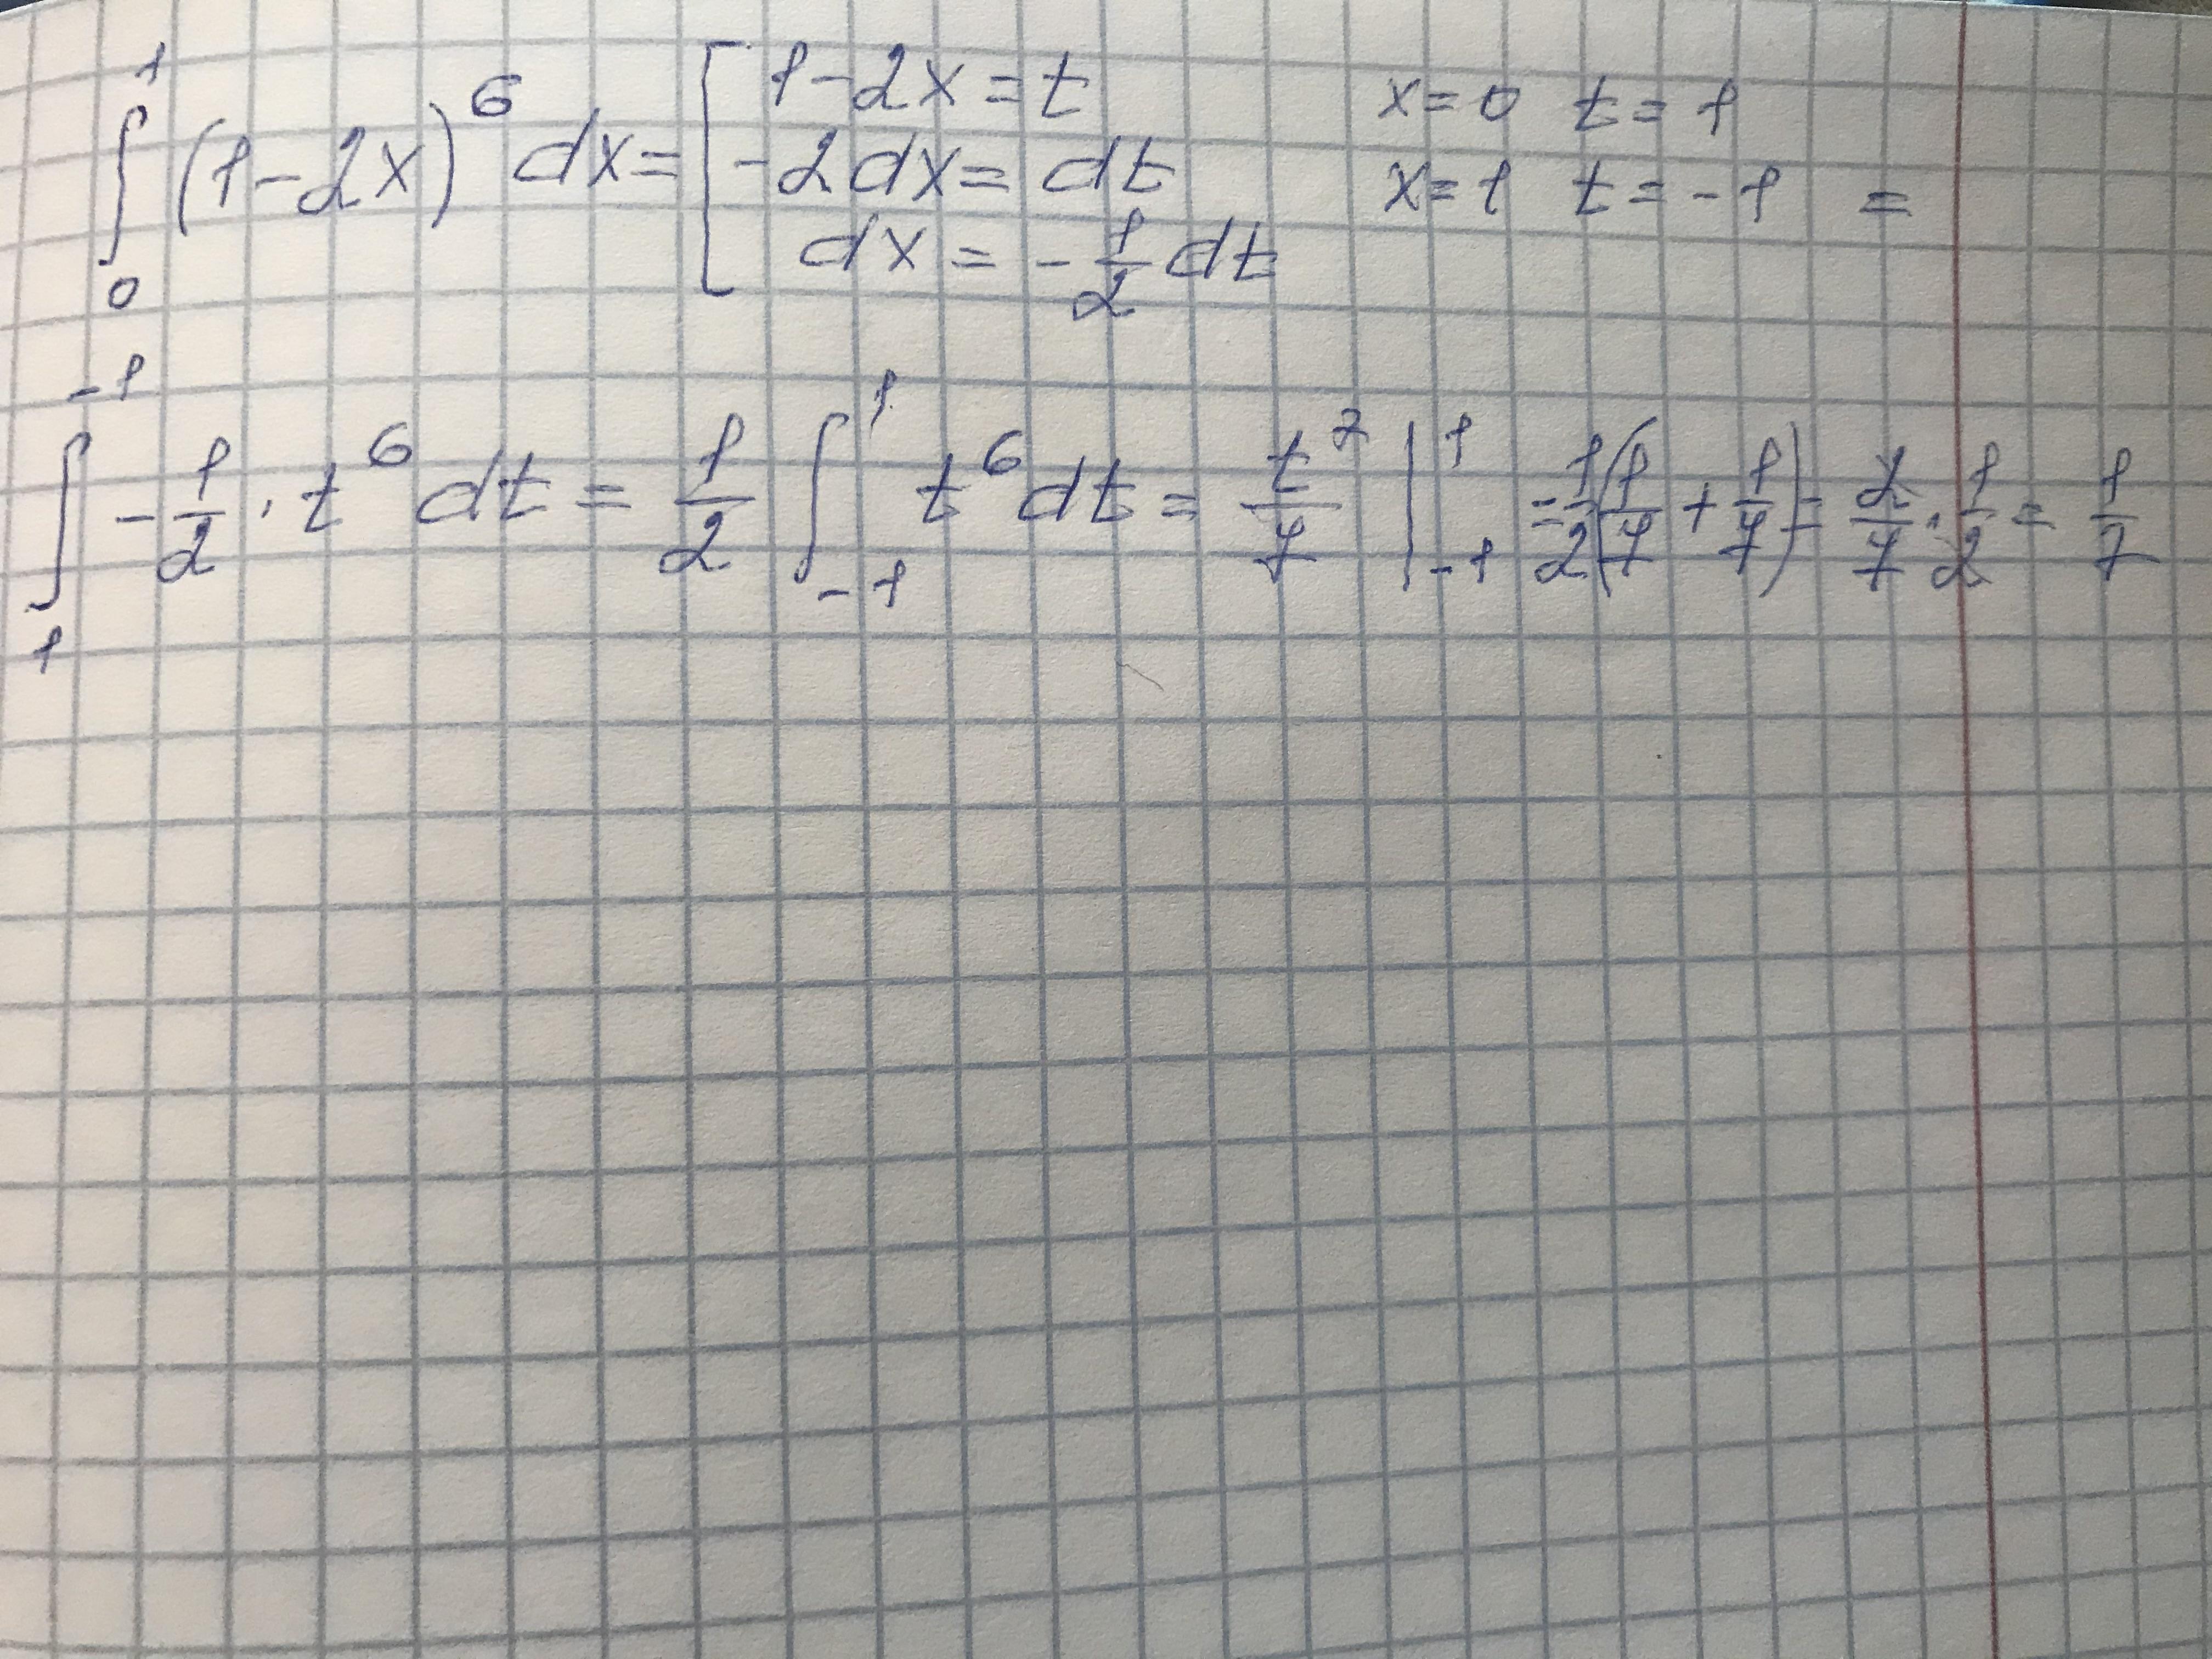 ∫₀¹ (1-2x)⁶ dx = [ 1-2x = t    x=0  t=1
-2dx = dt    x=1  t=-1  =
dx = -1/2 dt
∫₁⁻¹ -1/2 · t⁶ dt = 1/2 ∫₋₁¹ t⁶ dt = t⁷/7 |₋₁¹ = 1/2 (1/7 + 1/7) = 2/7 · 1/2 = 1/7